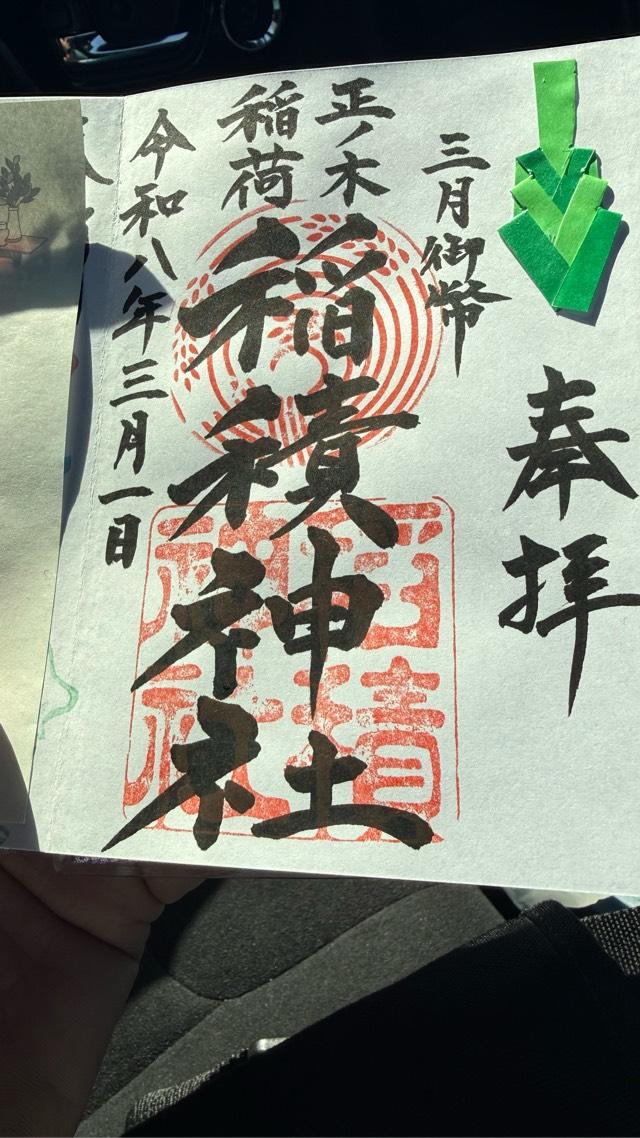 奉拝
三月御幣
正ノ木
稲荷
稲積神社
稲積
神社
令和八年三月一日